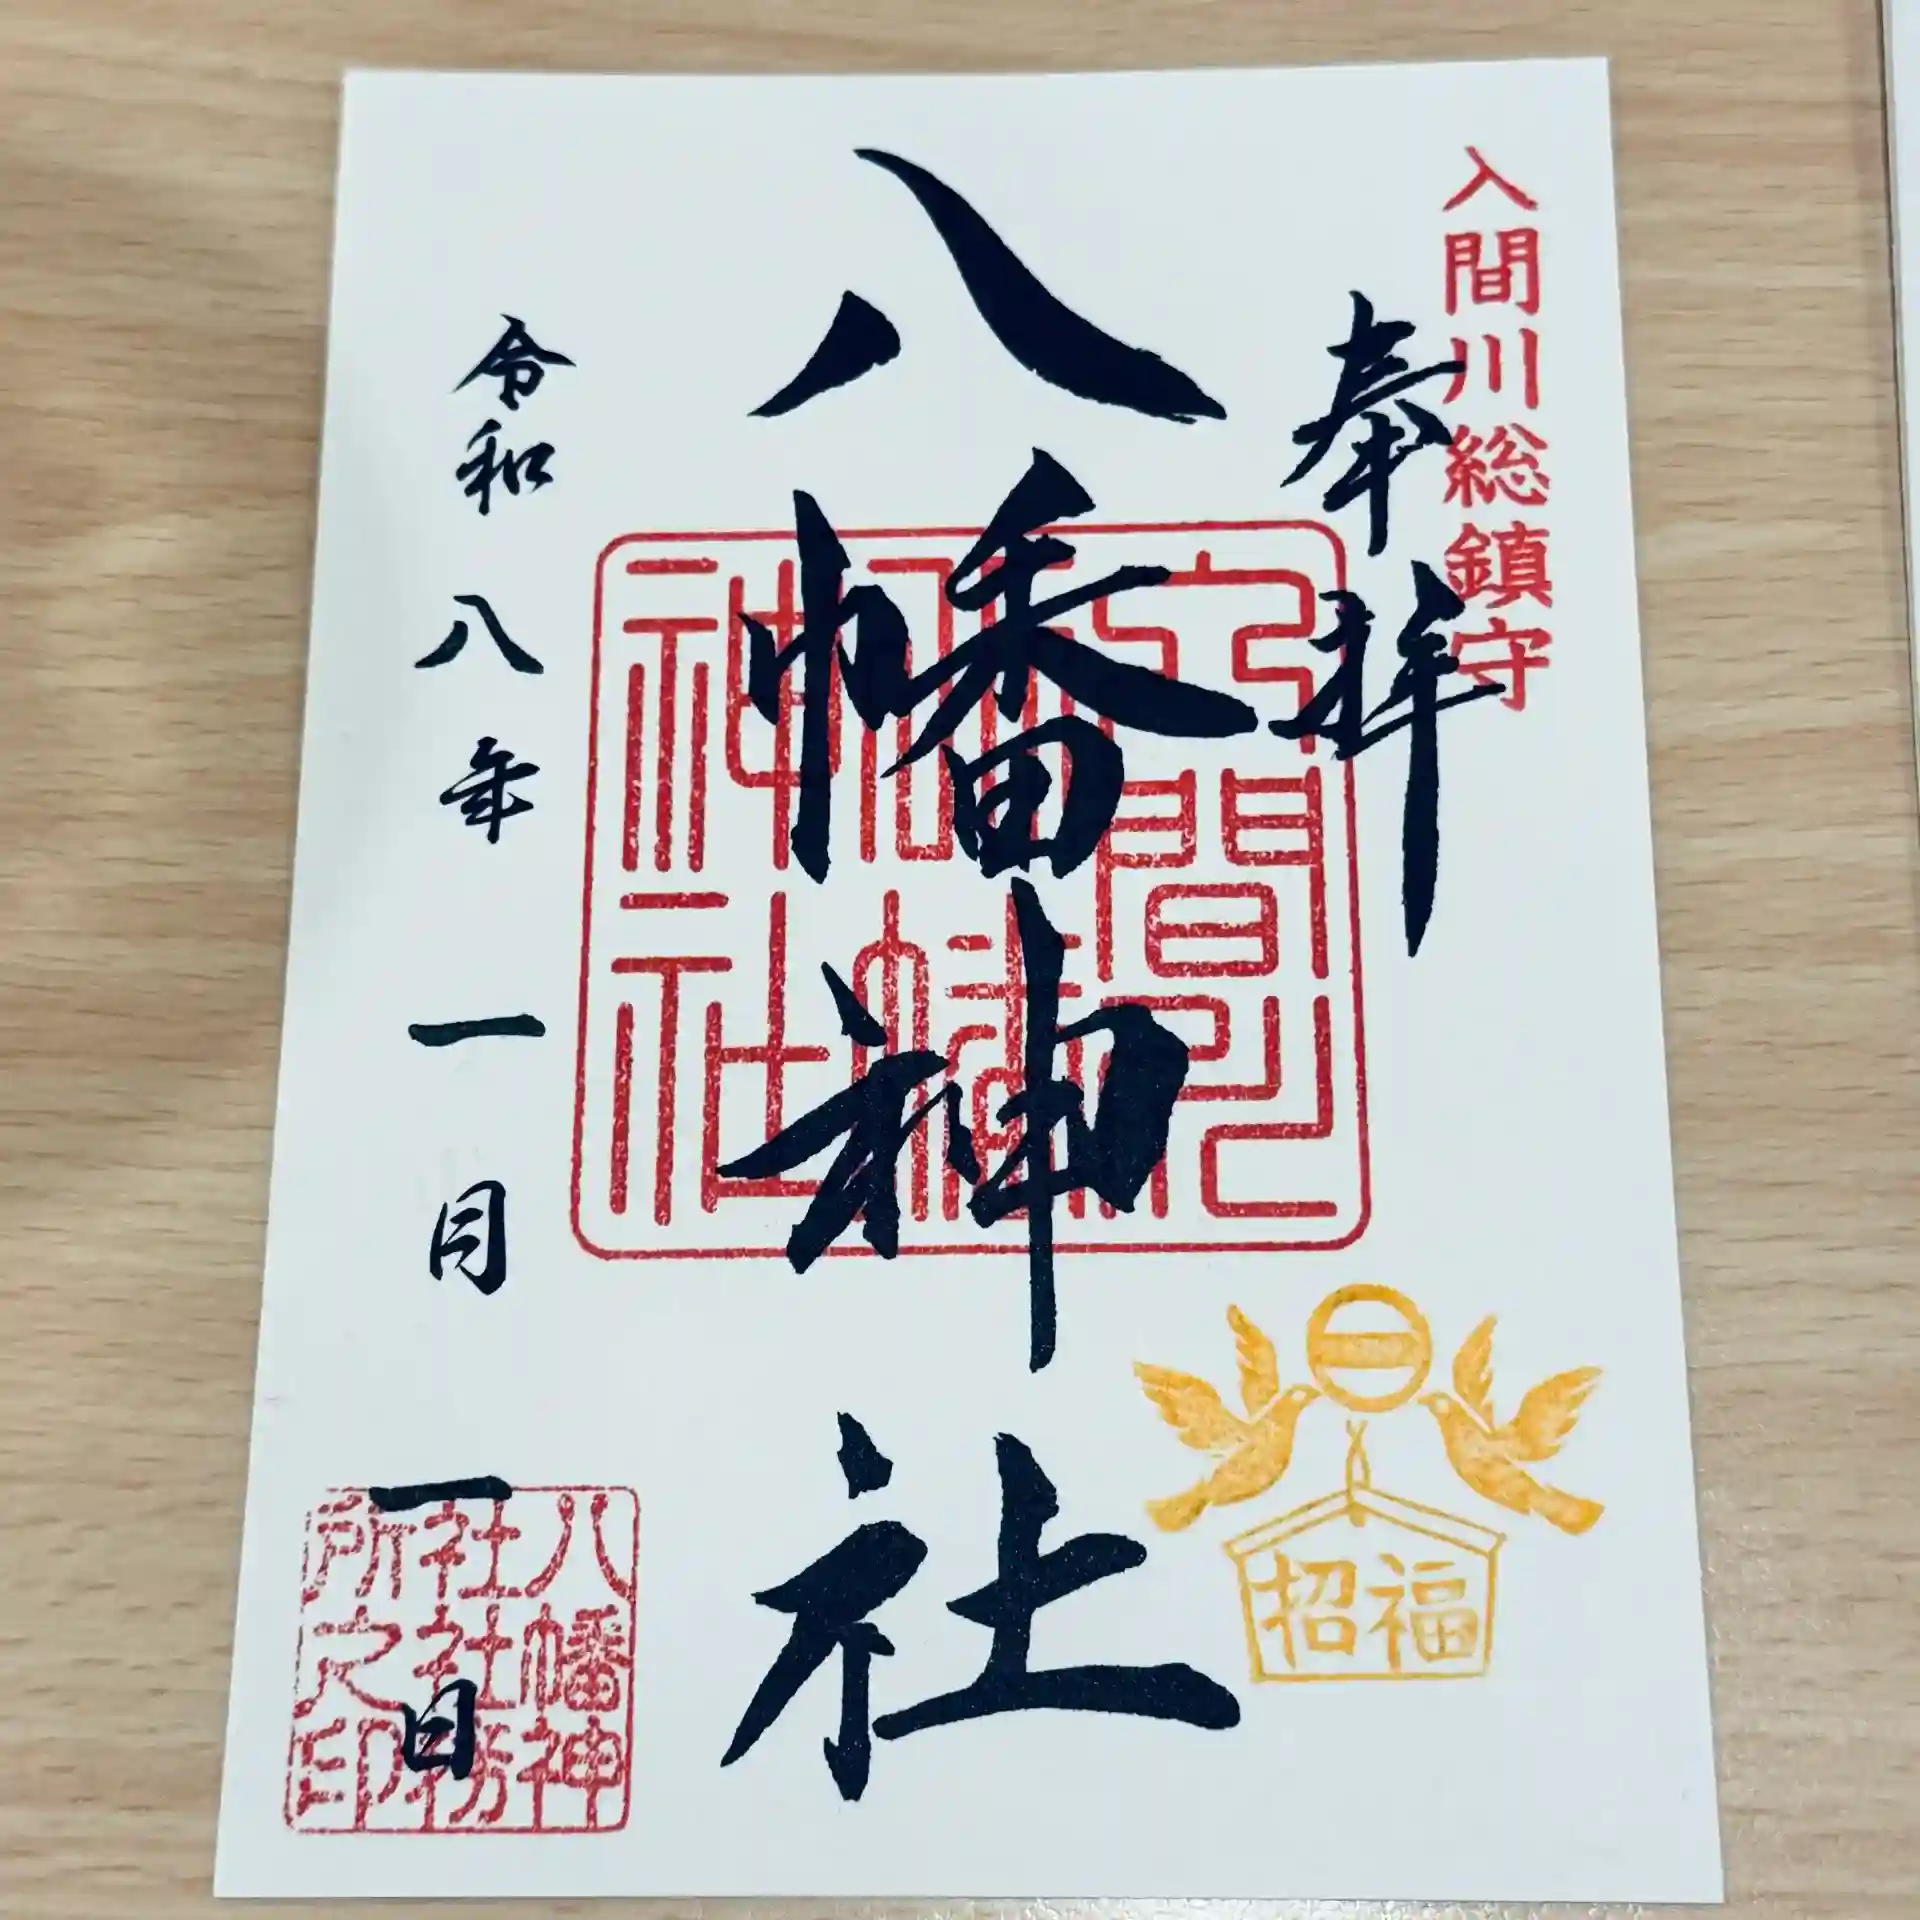 入間川総鎮守
奉拝
八幡神社
令和八年一月一日
入間川
八幡
神社
八幡神
社社務
所之印
招福